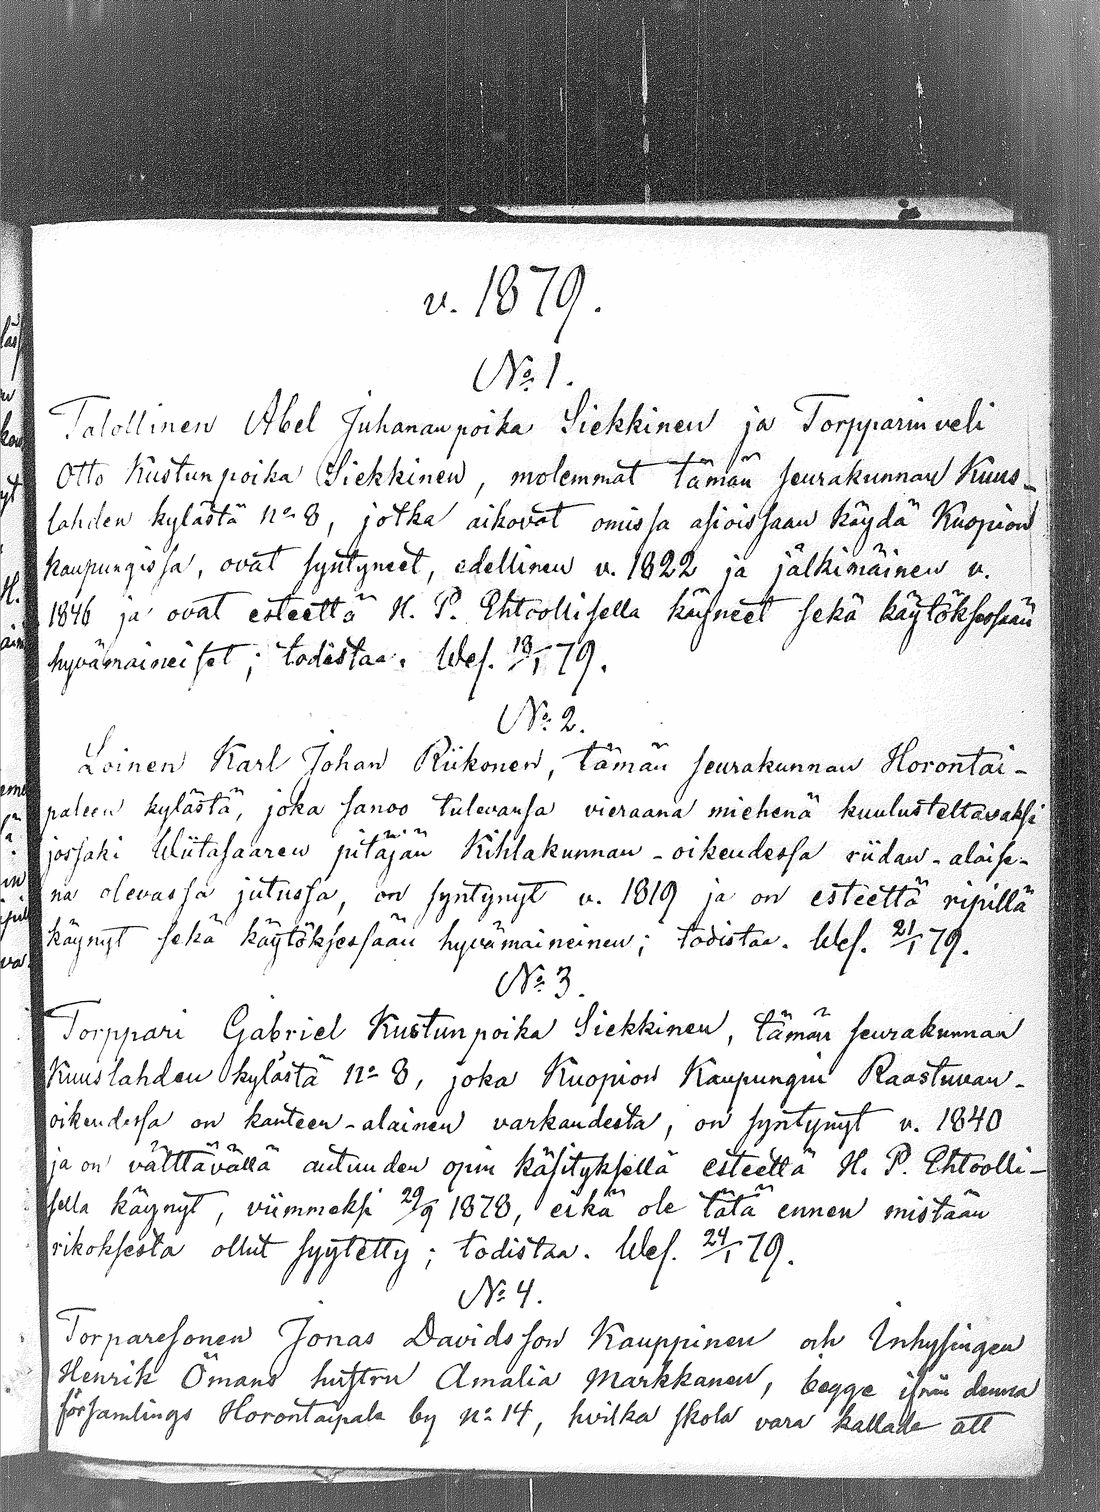 v. 1879.
No 1.
Talollinen Abel Juhananpoika Siekkinen ja Torpparinveli
Otto Kustunpoika Siekkinen, molemmat tämän seurakunnan Kuus-
lahden kylästä no 8, jotka aikovat omissa asioissaan käydä Kuopion
kaupungissa, ovat syntyneet, edellinen v. 1822 ja jälkimäinen v.
1846 ja ovat esteettä H. P. Ehtoollisella käyneet sekä käytöksessään
hyvämaineiset; todistaa. Wes. 18/1 79.
No 2.
Loinen Karl Johan Riikonen, tämän seurakunnan Horontai-
paleen kylästä, joka sanoo tulevansa vieraana miehenä kuulusteltavaksi
jossaki Wiitasaaren pitäjän Kihlakunnan-oikeudessa riidan-alaise-
na olevassa jutussa, on syntynyt v. 1819 ja on esteettä ripillä
käynyt sekä käytöksessään hyvämaineinen; todistaa. Wes. 21/1 79.
No 3.
Torppari Gabriel Kustunpoika Siekkinen, tämän seurakunnan
Kuuslahden kylästä no 8, joka Kuopion Kaupungin Raastuvan-
oikeudessa on kanteen-alainen varkaudesta, on syntynyt v. 1840
ja on välttävällä autuuden opin käsityksellä esteettä H. P. Ehtoolli-
sella käynyt, viimmeksi 29/9 1878, eikä ole tätä ennen mistään
rikoksesta ollut syytetty; todistaa. Wes. 24/1 79.
No 4.
Torparesonen Jonas Davidsson Kauppinen och Inhysingen
Henrik Ömans hustru Amalia Markkanen, begge ifrån denna
församlings Horontaipale by no 14, hvilka skola vara kallade att